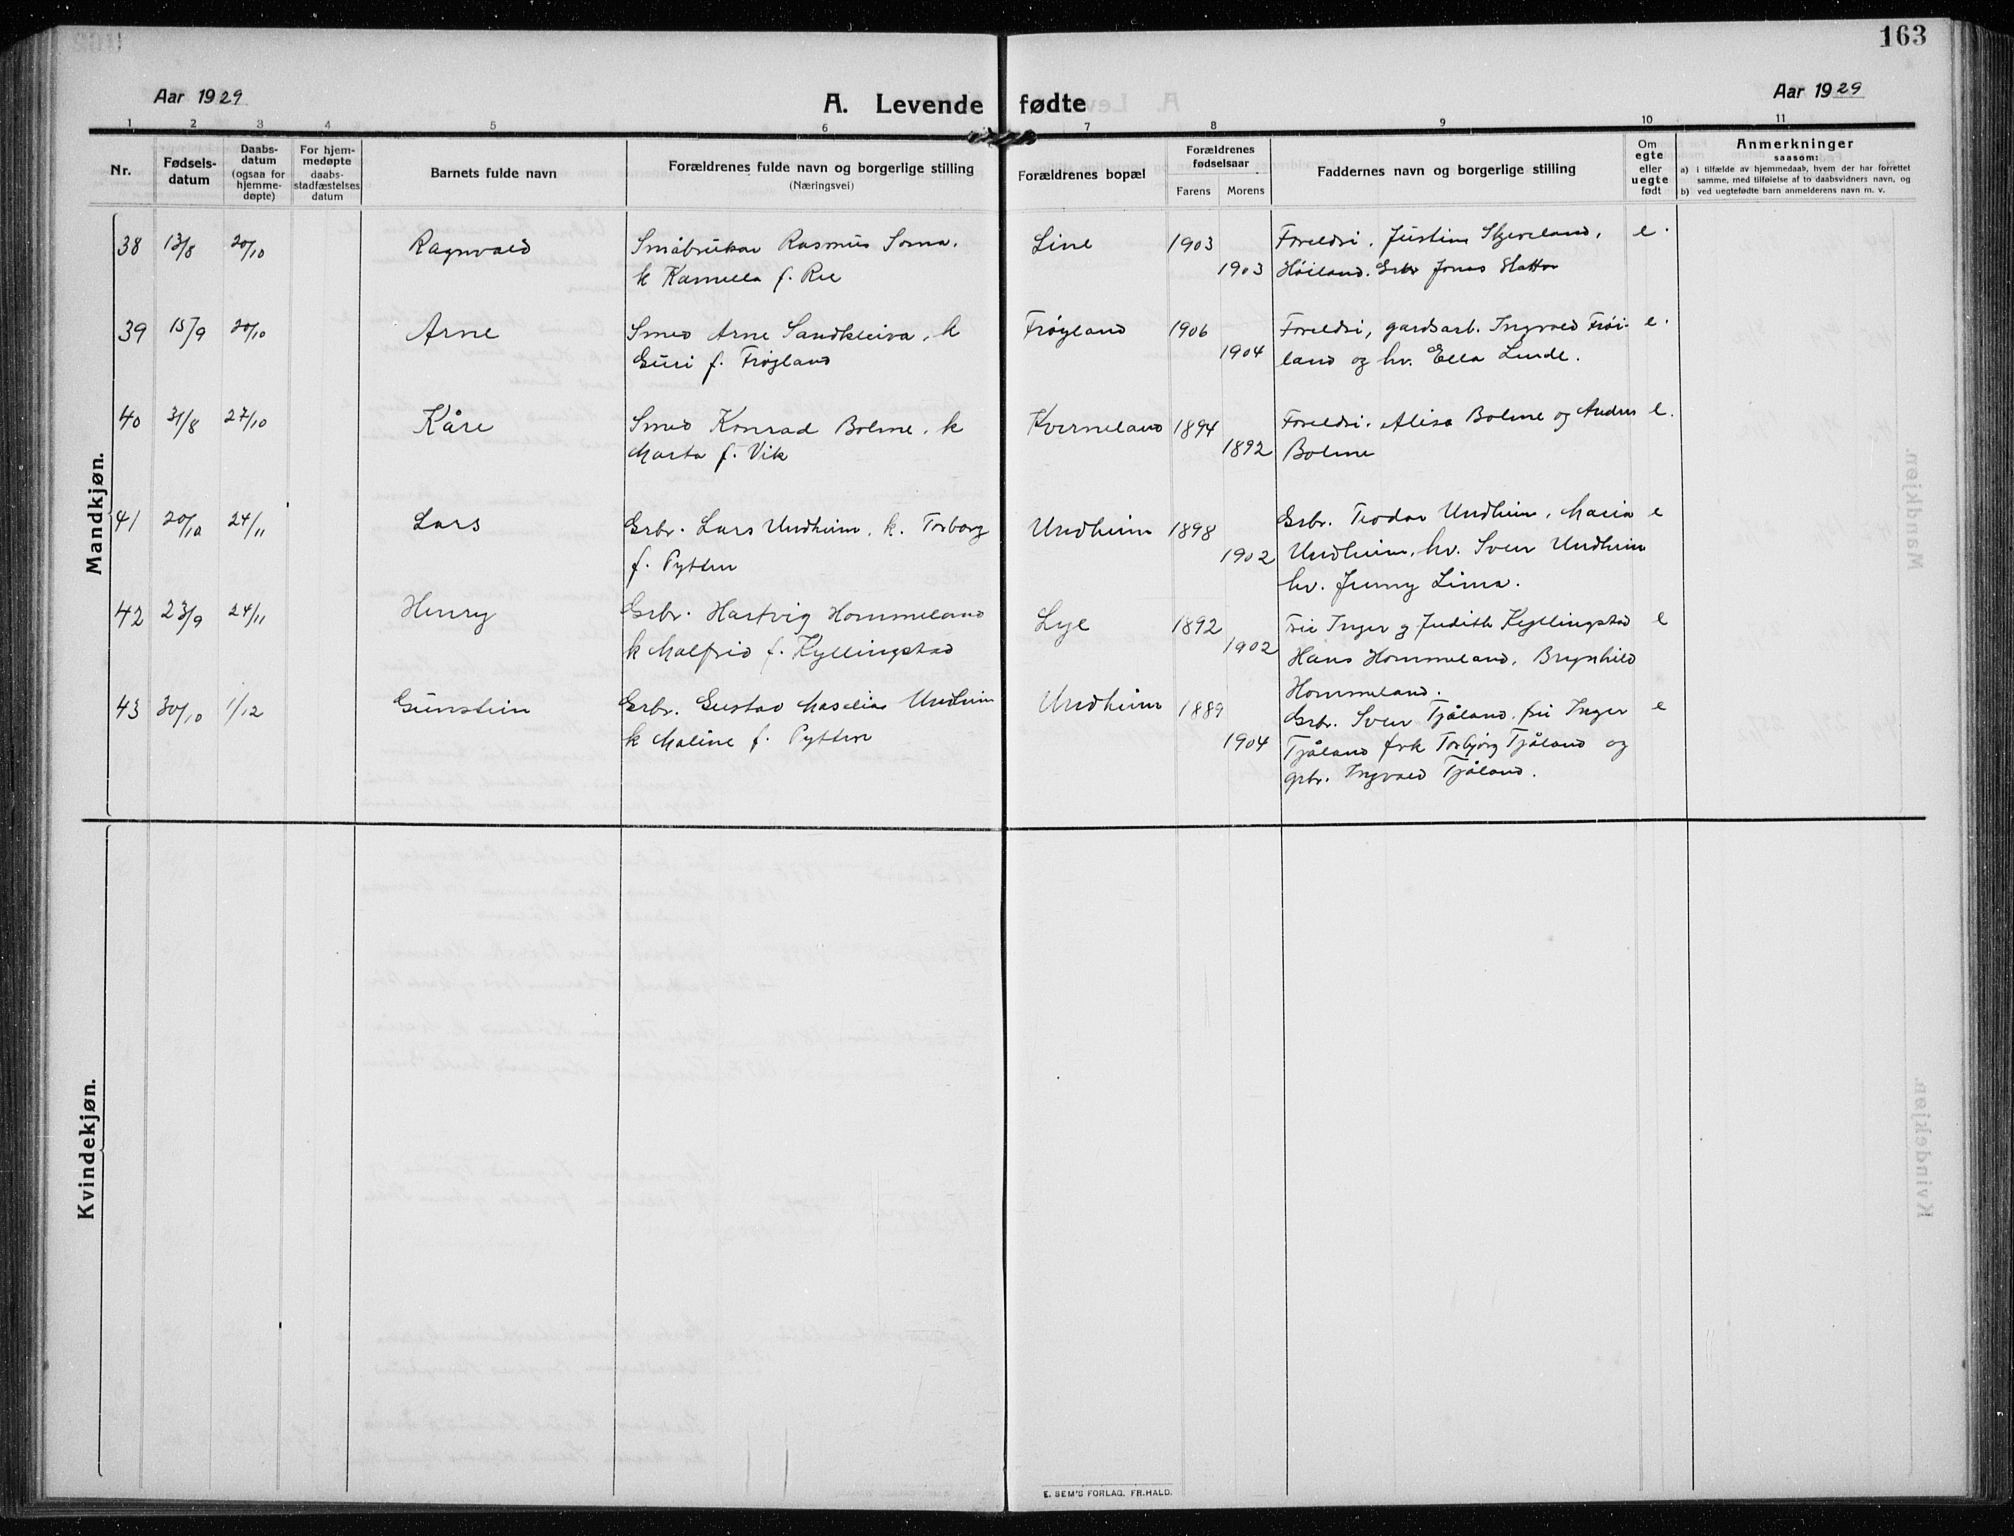 163
Aar 1929
A. Levende fødte
Aar 1929
1 2 3 4 5 6 7 8 9 10 11
Nr.
Fødsels-
datum
Daabs-
datum
(ogsaa for
hjemme-
døpte)
For hjem-
medøpte
daabs-
stadfæstelses
datum
Barnets fulde navn
Forældrenes fulde navn og borgerlige stilling
(Næringsvei)
Forældrenes bopæl
Forældrenes
fødselsaar
Farens Morens
Faddernes navn og borgerlige stilling
Om
egte
eller
uegte
født
Anmerkninger
saasom:
a) i tilfælde av hjemmedaab, hvem der har forrettet
samme, med tilføielse af to daabsvidners navn, og
b) ved uegtefødte barn anmelderens navn m. v.
Mandkjøn.
38 13/8 20/10 Ragnvald Småbrukar Rasmus Soma, Line 1903 Foreldri, Justine Skjereland, e.
k Kamilla f. Ree 1903 Høiland. Grbr Jonas
39 15/9 20/10 Arne Smed Arne Sandkleiva, k Frøyland 1906 Foreldri, gardsarb. Ingvald Frøi- e.
Guri f. Frøyland 1904 land og hv. Ella Linde.
40 31/8 27/10 Kåre Smed Konrad Bolme, k Kverneland 1894 Foreldri. Alisa Bolme og Anders e.
Marta f. Vik 1892 Bolme
41 20/10 24/11 Lars Grbr. Lars Undheim, k. Torborg Undheim 1898 Grbr. Teodor Undheim, Maria e
f. Pytten 1902 Undheim, hv. Sven Undheim
hv. Jenny Lima.
42 23/9 24/11 Henry Grbr. Hartvig Hommeland Lye 1892 Frk Inger og Judith Kyllingstad e
k Malfrid f. Kyllingstad 1902 Hans Hommeland, Brynhild
Hommeland.
43 30/10 1/12 Gunstein Grbr. Gustav Maselias Undheim Undheim 1889 Grbr. Sven Tjåland, fru Inger e
k Maline f. Pytten 1904 Tjåland frk Torbjørg Tjåland og
grbr. Ingvald Tjåland.
Kvindekjøn.
E. SEM'S FORLAG, FR.HALD.